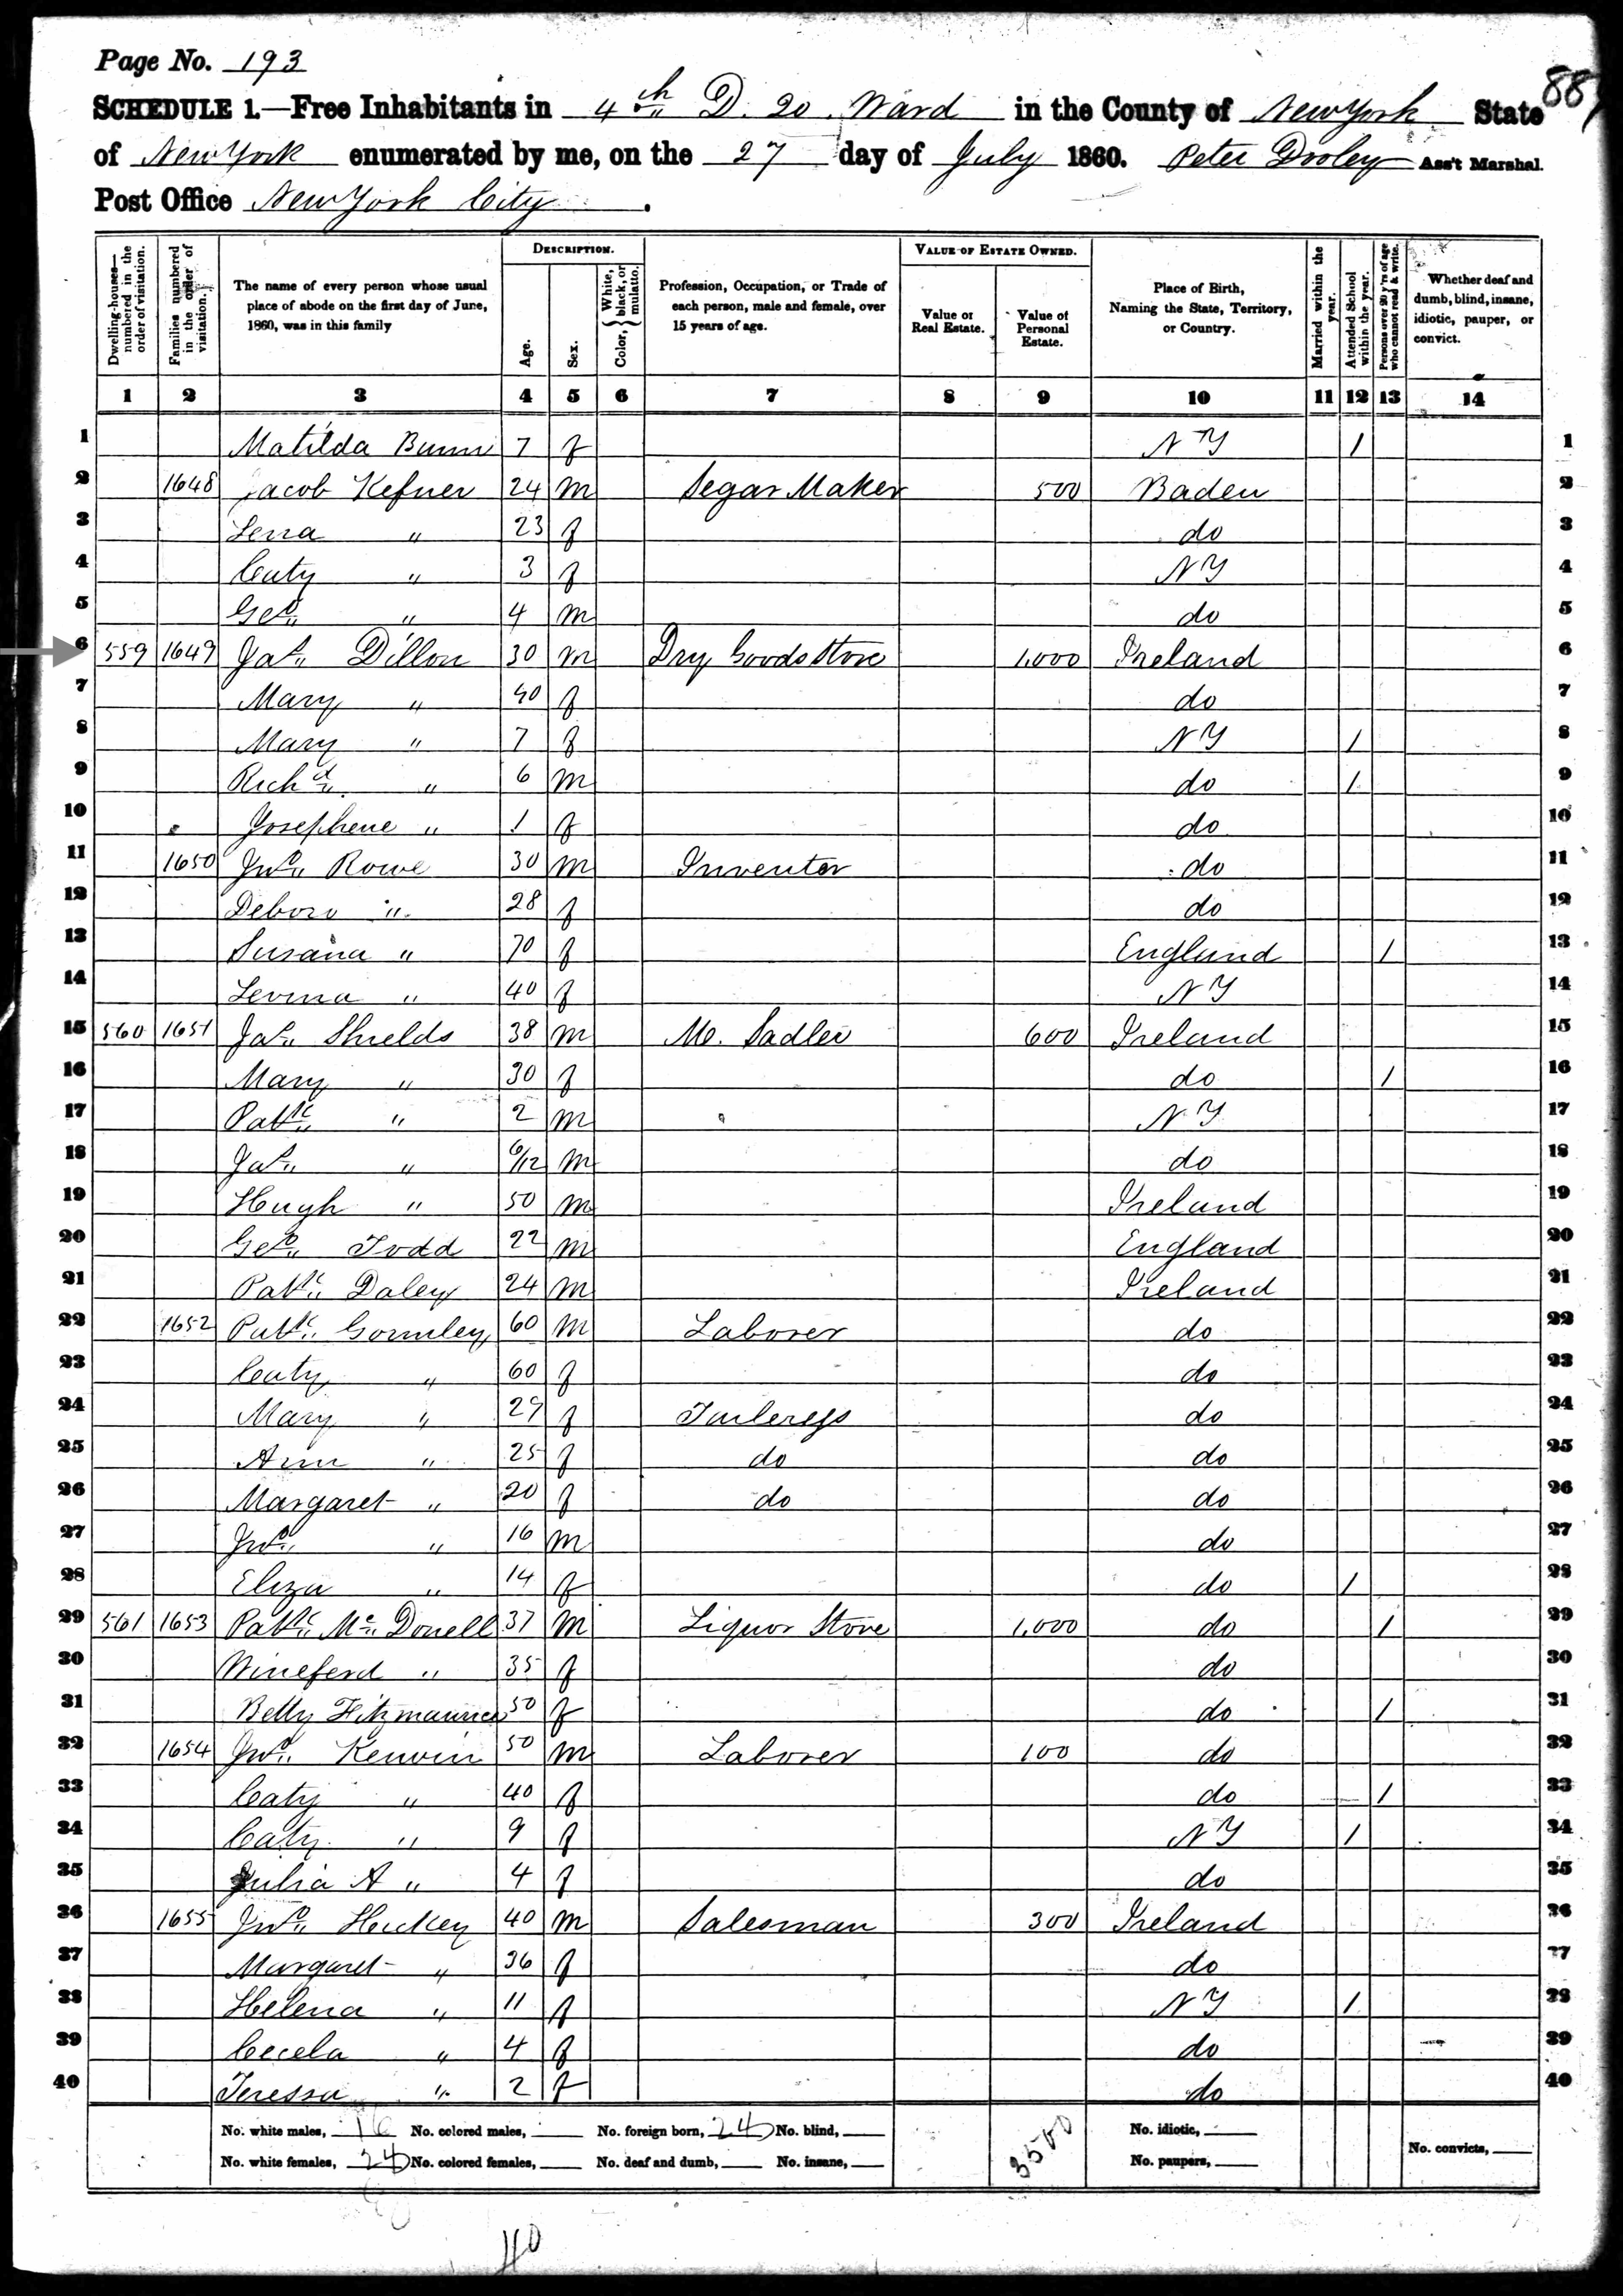 Page No. 193
SCHEDULE 1.—Free Inhabitants in 4th D. 20. Ward in the County of New York State
of New York enumerated by me, on the 27 day of July 1860. Peter Dooley Ass't Marshal.
Post Office New York City.
Dwelling-houses—numbered in the order of visitation.
Families numbered in the order of visitation.
The name of every person whose usual place of abode on the first day of June, 1860, was in this family
DESCRIPTION.
Age.
Sex.
Color, { White, black, or mulatto.
Profession, Occupation, or Trade of each person, male and female, over 15 years of age.
VALUE OF ESTATE OWNED.
Value of Real Estate.
Value of Personal Estate.
Place of Birth, Naming the State, Territory, or Country.
Married within the year.
Attended School within the year.
Persons over 20 y'rs of age who cannot read & write.
Whether deaf and dumb, blind, insane, idiotic, pauper, or convict.
1 2 3 4 5 6 7 8 9 10 11 12 13 14
1 Matilda 7 f NY / 1
2 1648 Jacob Kefner 24 m Segar Maker 500 Baden 2
3 Lena " 23 f do 3
4 Caty " 3 f NY 4
5 Geo " 4 m do 5
6 559 1649 Jas Dillon 30 m Dry Goods Store 1,000 Ireland 6
7 Mary " 40 f do 7
8 Mary " 7 f NY / 8
9 Richd " 6 m do / 9
10 Josephene " 1 f do 10
11 1650 Jno Rowe 30 m Inventer do 11
12 Deboro " 28 f do 12
13 Susana " 70 f England / 13
14 Levina " 40 f NY 14
15 560 1651 Jas Shields 38 m M. Sadler 600 Ireland 15
16 Mary " 30 f do / 16
17 Patk " 2 m NY 17
18 Jas " 6/12 m do 18
19 Hugh " 50 m Ireland 19
20 Geo Todd 22 m England 20
21 Patk Daley 24 m Ireland 21
22 1652 Patk Gormley 60 m Laborer do 22
23 Caty " 60 f do 23
24 Mary " 29 f Taileress do 24
25 Ann " 25 f do do 25
26 Margaret " 20 f do do 26
27 Jno " 16 m do 27
28 Eliza " 14 f do / 28
29 561 1653 Patk Mc Donell 37 m Liquor Store 1,000 do / 29
30 Wineferd " 35 f do 30
31 Betty Fitzmaurice 50 f do / 31
32 1654 Jno Kerwin 50 m Laborer 100 do 32
33 Caty " 40 f do / 33
34 Caty " 9 f NY / 34
35 Julia A " 4 f do 35
36 1655 Jno Hickey 40 m Salesman 300 Ireland 36
37 Margaret " 36 f do 37
38 Helena " 11 f NY / 38
39 Cecela " 4 f do 39
40 Teressa " 2 f do 40
No. white males, 16 No. colored males, No. foreign born, 24 No. blind, 3500 No. idiotic,
No. white females, 24 No. colored females, No. deaf and dumb, No. insane, No. paupers, No. convicts,
40